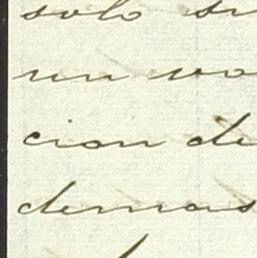 solo su
un vo
cion de
demas